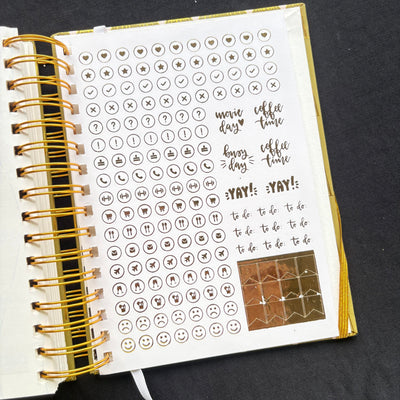 movie
day
coffee
time
busy
day
coffee
time
YAY! YAY!
to do: to do: to do:
to do: to do: to do:
to do: to do: to do: